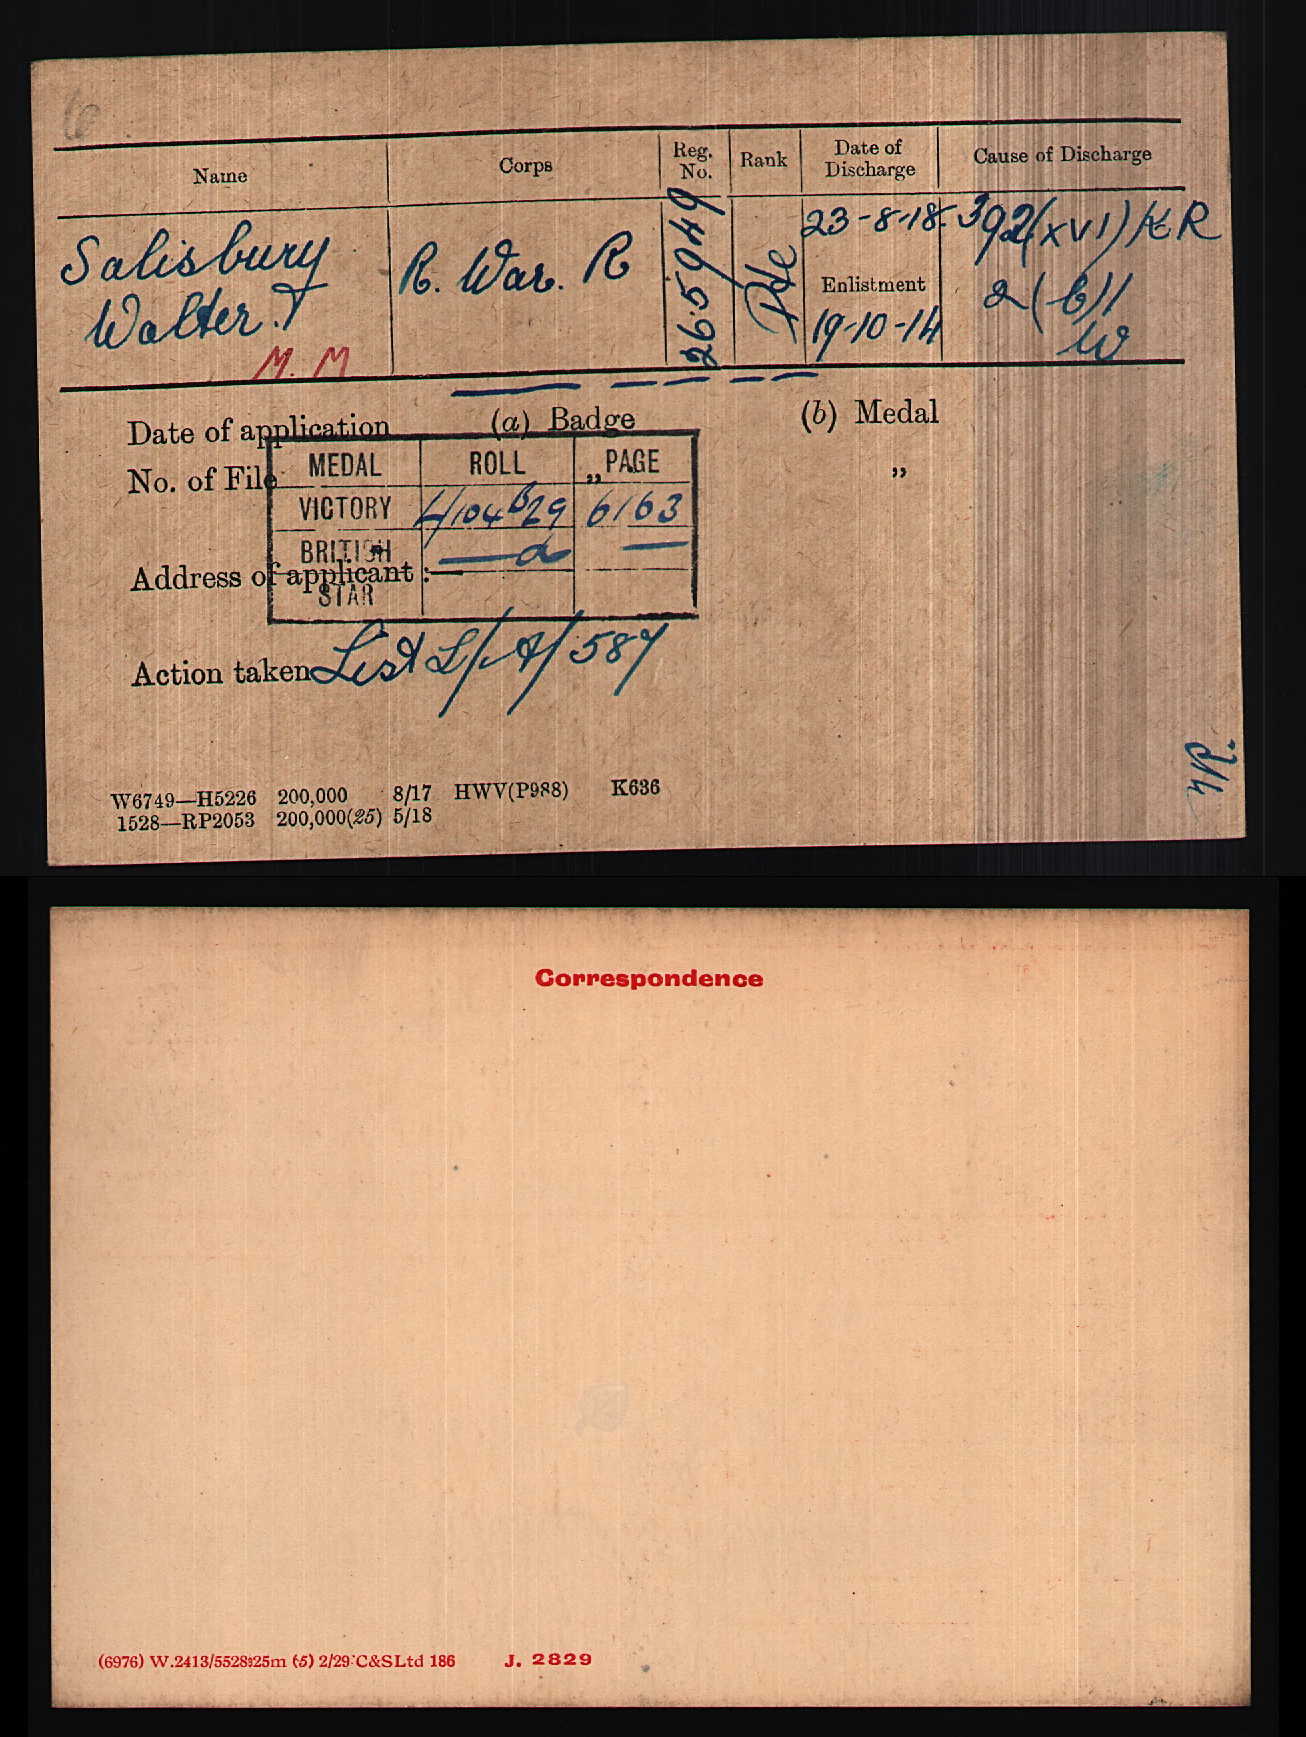 Name Corps Reg. No. Rank Date of Discharge Cause of Discharge
Salisbury R. War. R 265949 Pte 23-8-18 392(XVI) K R
Walter. T Enlistment 2(b)1
M. M 19-10-14 W
Date of application (a) Badge (b) Medal
No. of File „ ”
MEDAL ROLL PAGE
VICTORY L/104 B29 6163
BRITISH — do —
STAR
Address of applicant :—
Action taken List L/A/587
W6749—H5226 200,000 8/17 HWV(P988) K636
1528—RP2053 200,000(25) 5/18
Correspondence
(6976) W.2413/5528 25m (5) 2/29 C&SLtd 186 J. 2829